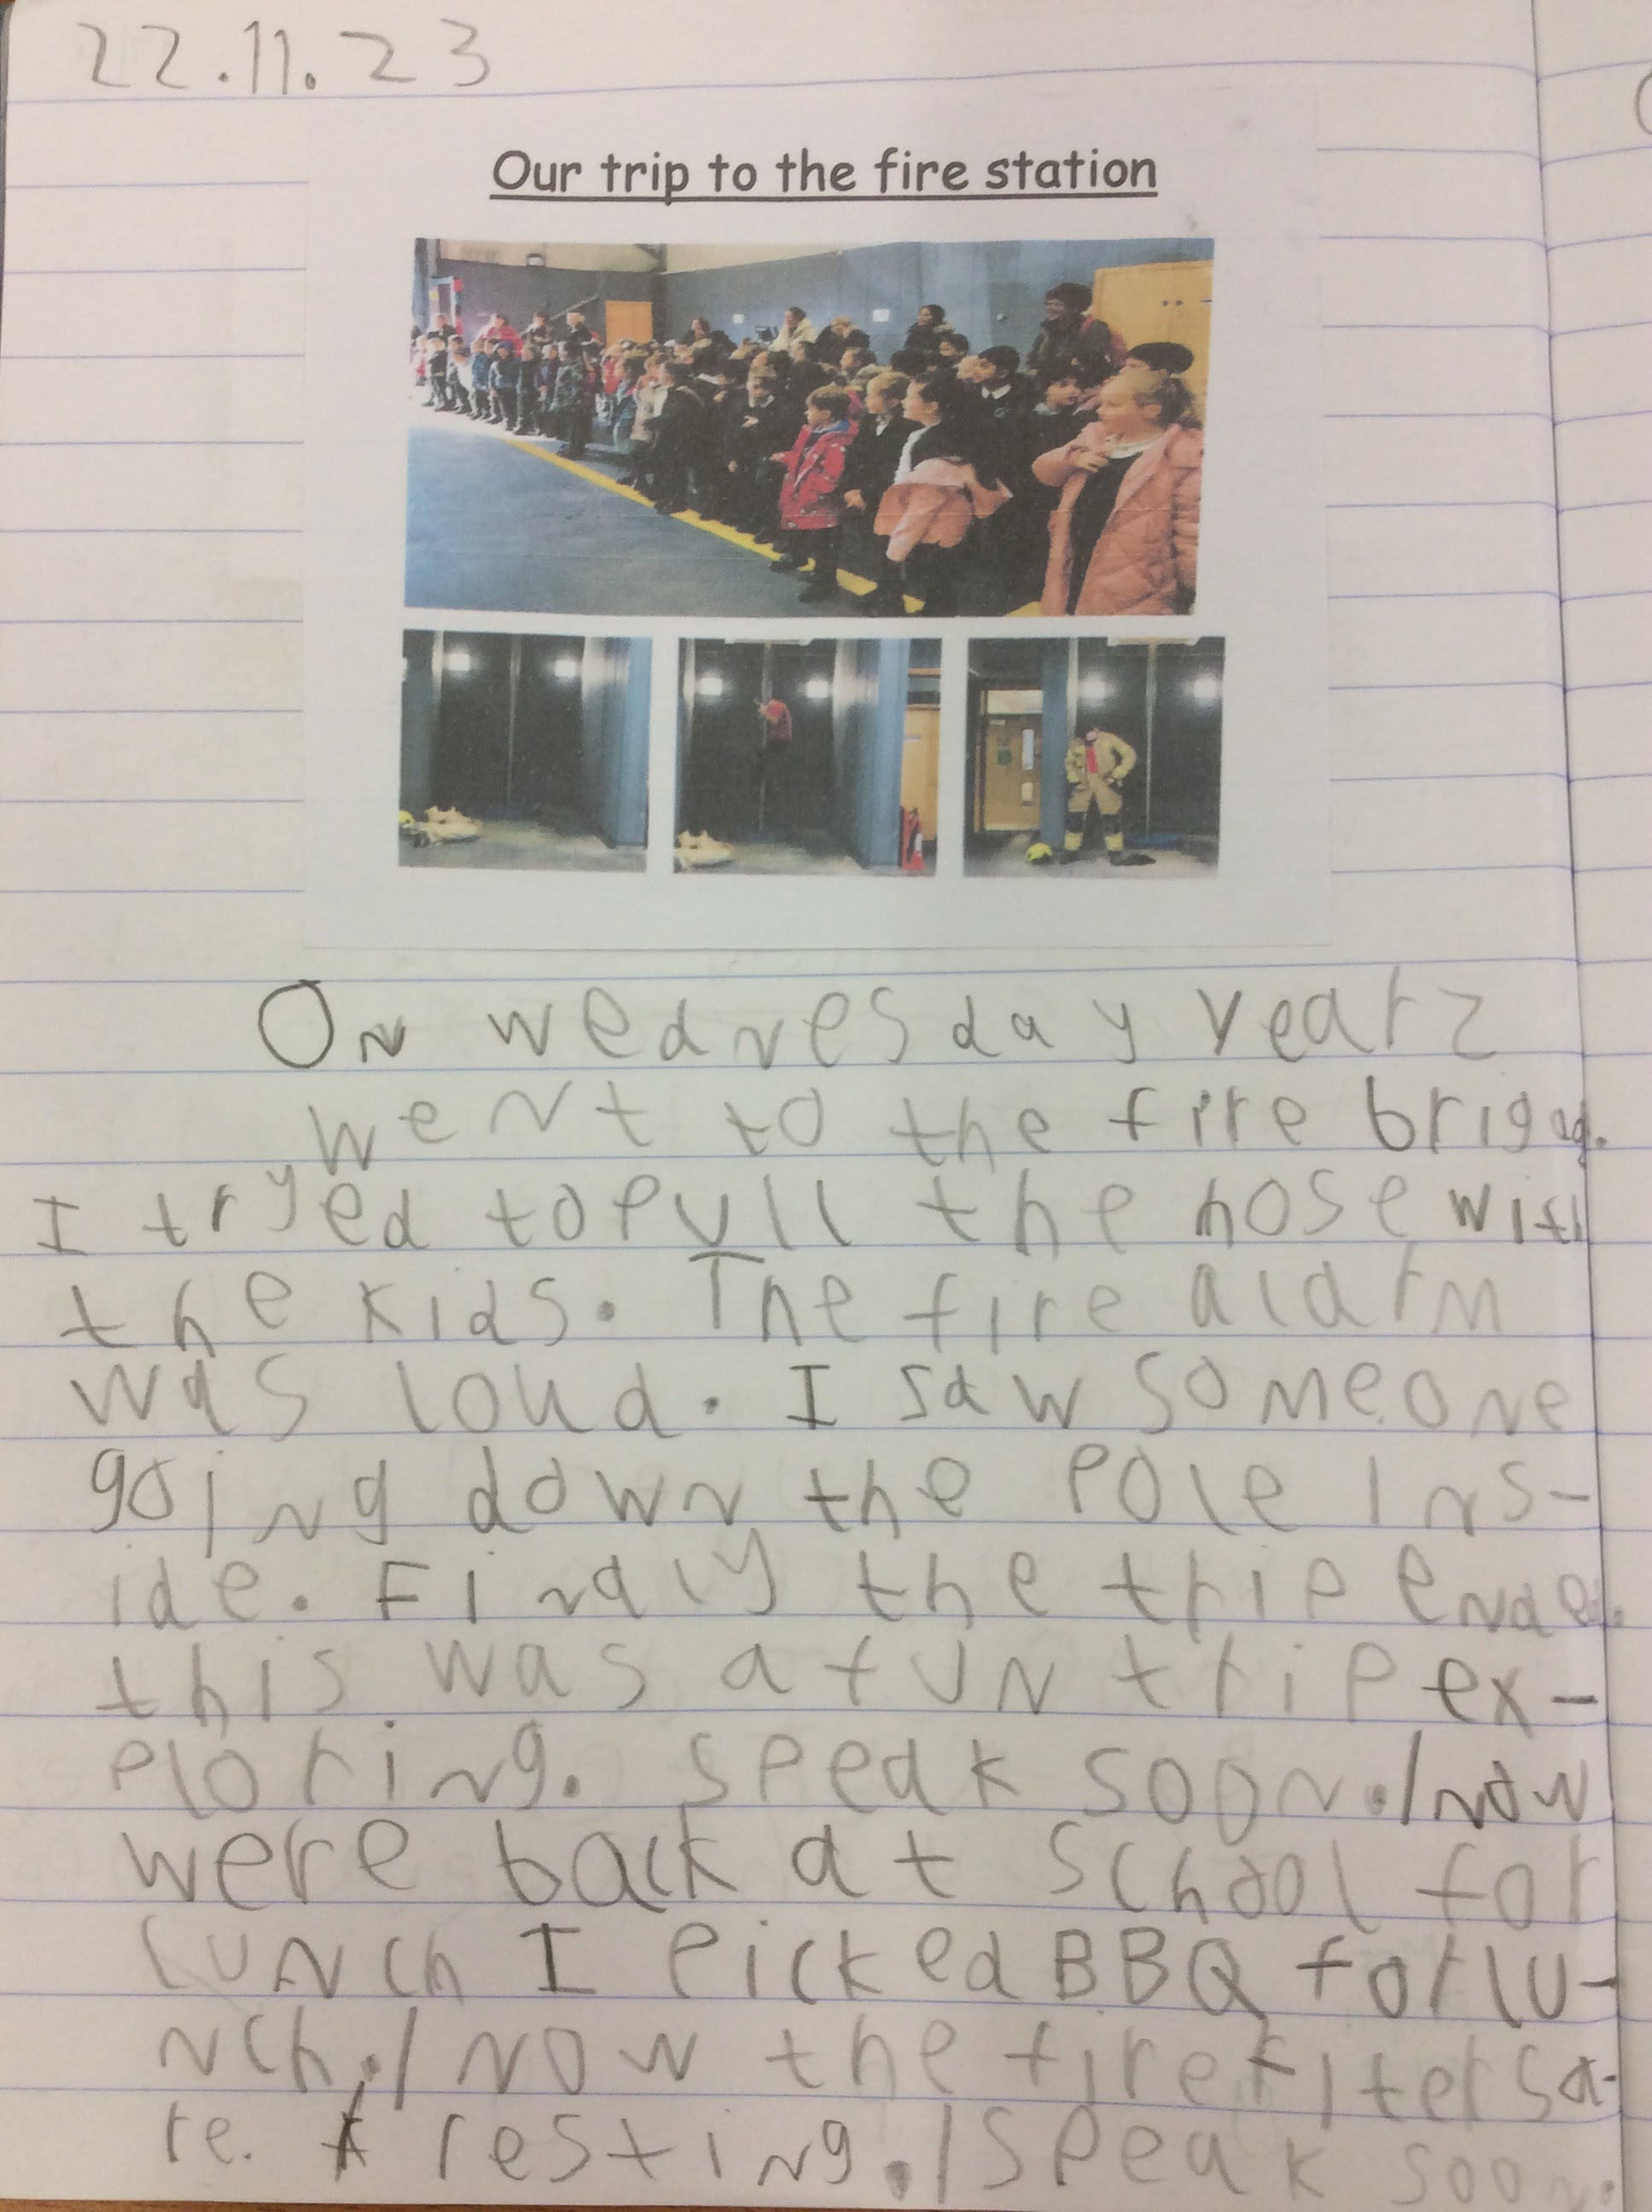 22.11.23
Our trip to the fire station
On wednesday year 2
went to the fire brigad.
I tryed to pull the hose with
the kids. The fire alarm
was loud. I saw someone
going down the pole ins-
ide. Finaly the trip ended.
this was a fun trip ex-
ploring. speak soon./now
were back at school for
lunch I picked BBQ for lu-
nch./now the firefiters a-
re. resting./speak soon.